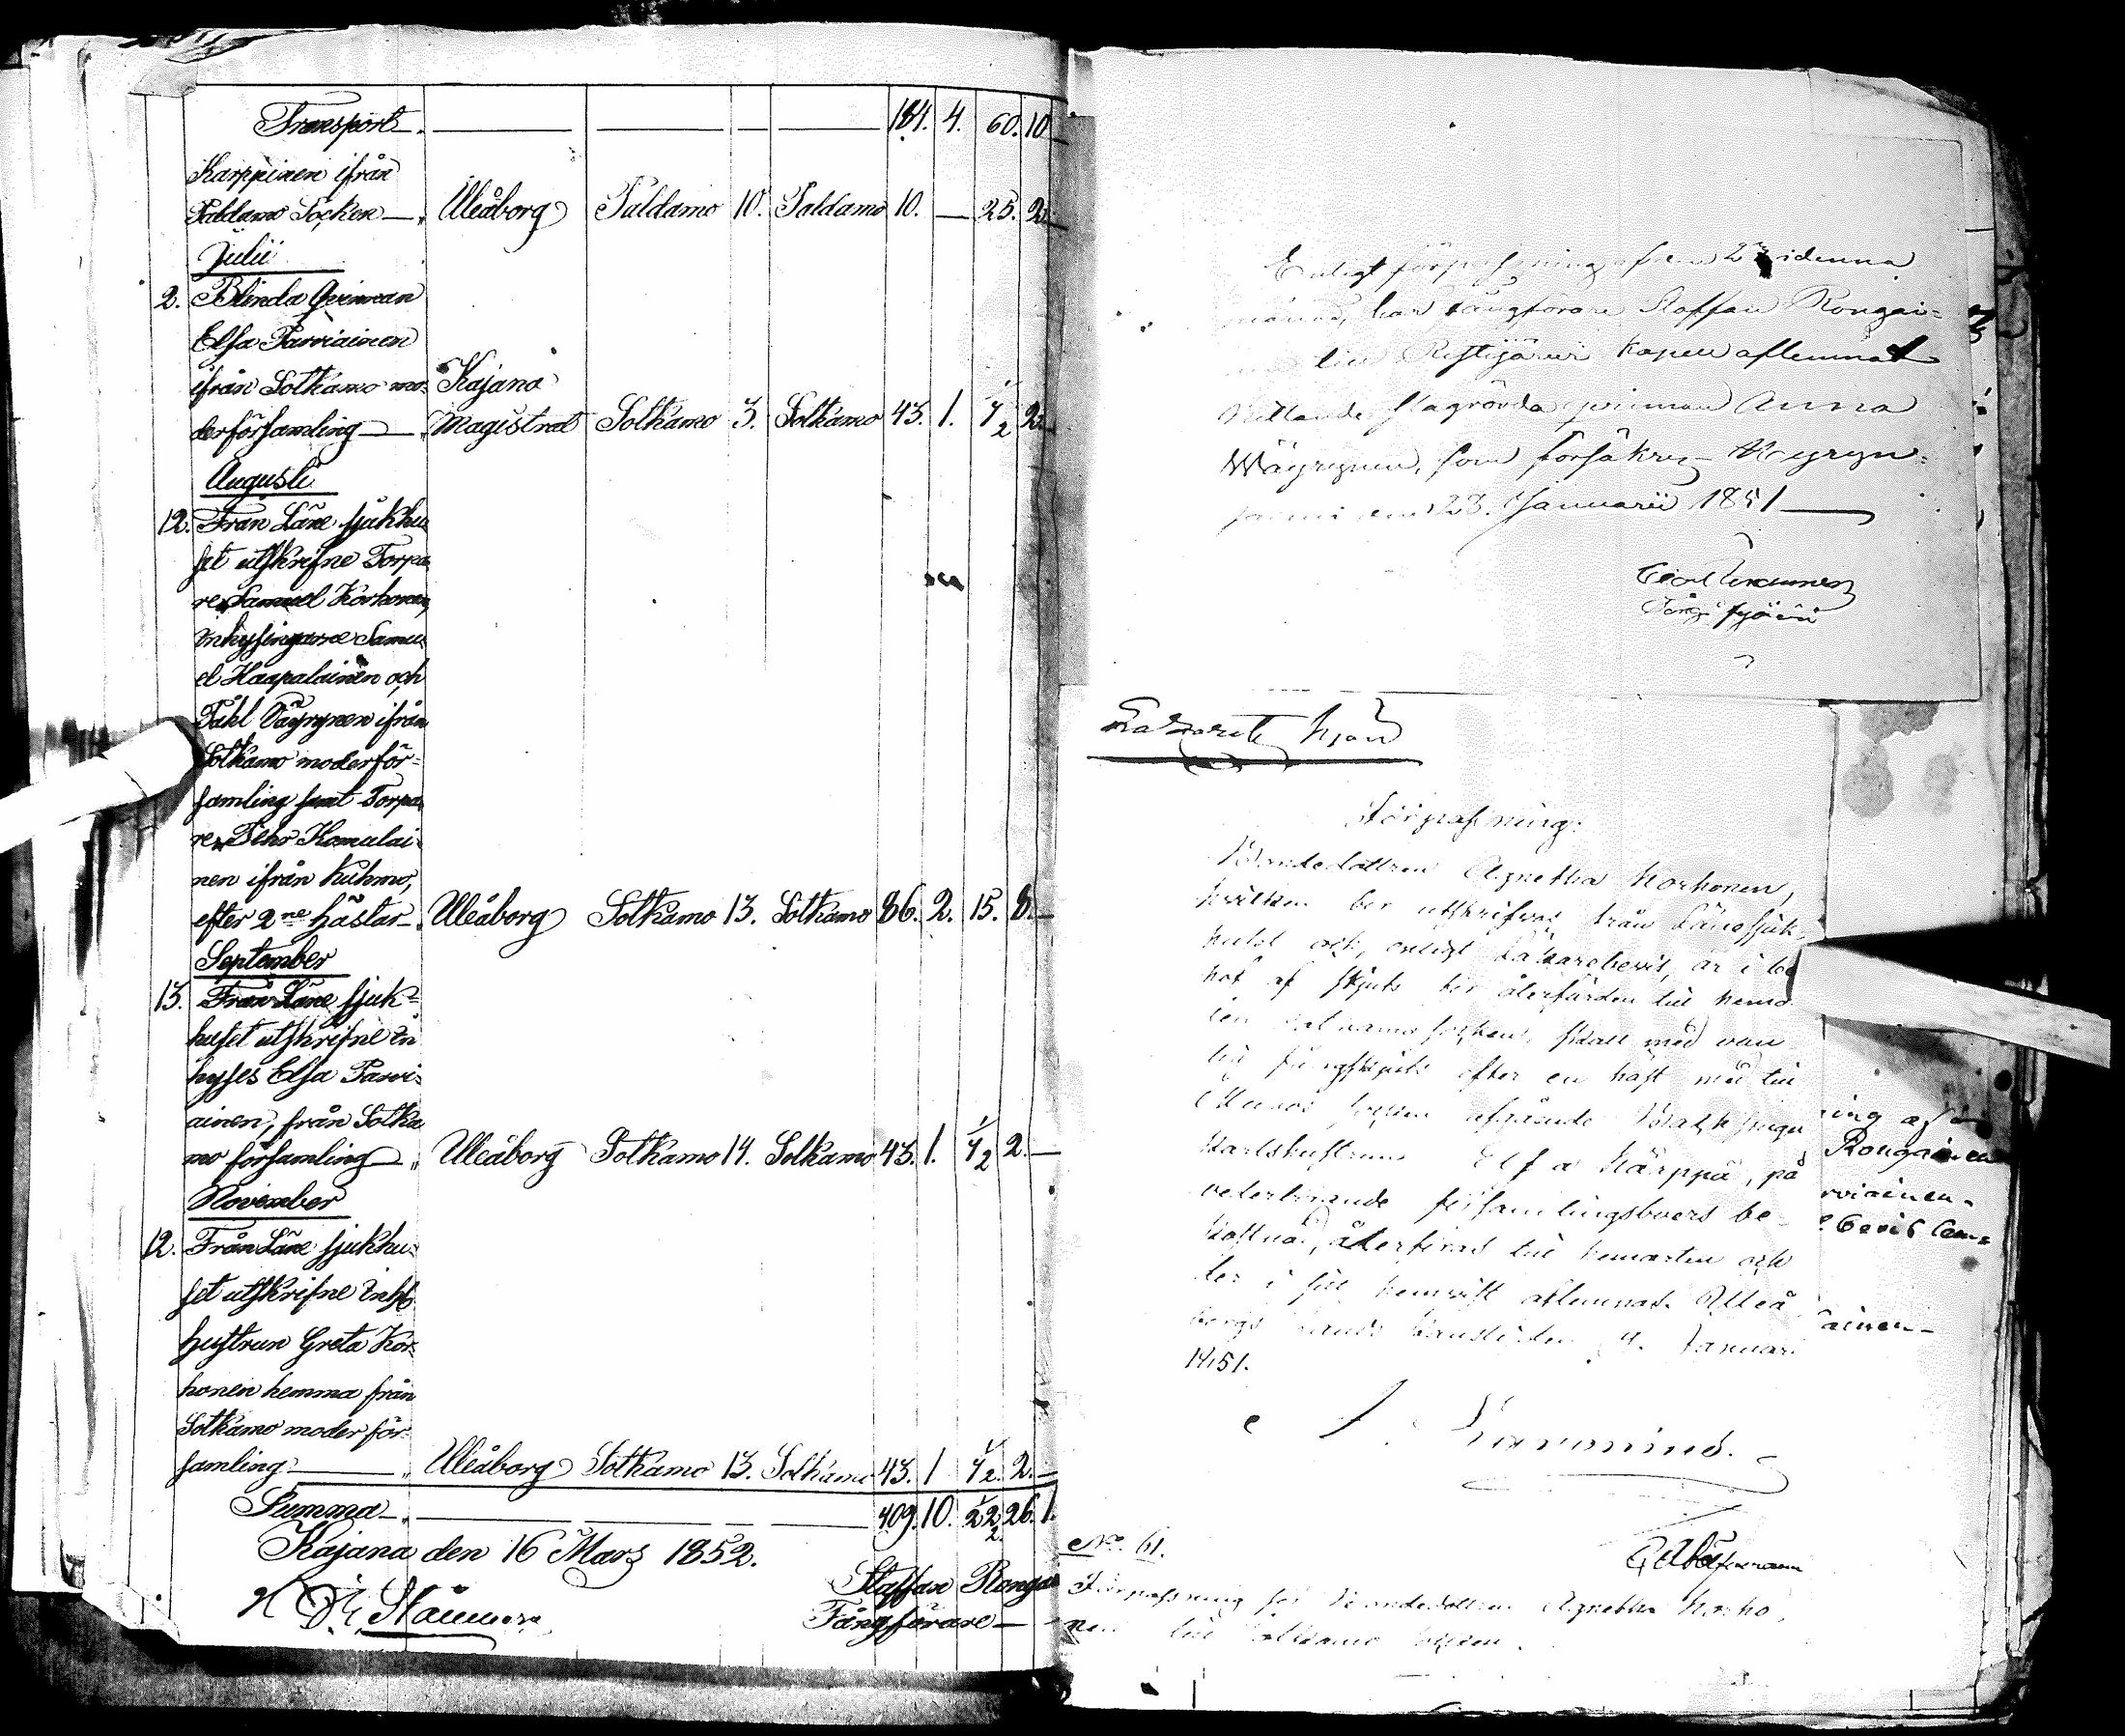 Transport 184. 4. 60. 10
Karppinen ifrån
Paldamo Socken Uleåborg Paldamo 10. Paldamo 10. — 25. 2.
Julii
2. Blinda Qvinnan
Elsa Parviainen
ifrån Sotkamo mo- Kajana
derförsamling Magistrat Sotkamo 3. Sotkamo 43. 1. 7 1/2 2.
Augusti
12. Från Läne sjukhu
set utskrifne Torpa
re Samuel Korhonen,
Inhysingarne Samu
el Haapalainen och
Påhl Väyrynen ifrån
Sotkamo moderför-
samling samt Torpa
re Pehr Komulai-
nen ifrån Kuhmo,
efter 2ne hästar Uleåborg Sotkamo 13. Sotkamo 86. 2. 15. 8.
September
13. Från Läne sjuk-
huset utskrifne In
hyses Elsa Parvi-
ainen, från Sotka
mo församling Uleåborg Sotkamo 14. Sotkamo 43. 1. 7 1/2 2.
November
12. Från Läne sjukhu-
set utskrifne Inhs
hustrun Greta Kor-
honen hemma från
Sotkamo moder för-
samling Uleåborg Sotkamo 13. Sotkamo 43. 1 7 1/2. 2.
Summa 409. 10. 22 1/2 26. 1.
Kajana den 16 Mars 1852.
Staffan Rongai
Fångförare
Enligt förpassning af den 2 i denna
månad, har fångförare Staffan Rongai-
till Ristijärvi kapell aflemnat
qvinnan Anna
Wäyrynen, som försäkras
den 23. Januarii 1851
Lazarets hjon
Förpassning.
Bondedottren Agnetha Korhonen,
hvilken blir utskrifven från Länesjuk-
huset och, enligt Läkarebevis, är i be
hof af skjuts för återfärden till hemor
ten Sotkamo socken, skall med van
lig fångskjuts efter en häst med till
socken afgående
karlshustrun Elsa Kärppä, på
vederbörande församlingsboers be-
kostnad, återföras till hemorten och
der i sitt hemvist aflemnas. Uleå
borgs Lands Canslie den 4. Januari
1851.
ing af
Rongainen
rviainen
bevis lem-
ainen
No. 61.
Förpassning för Bondedottren Agnetha Korho
nen till Sotkamo socken.